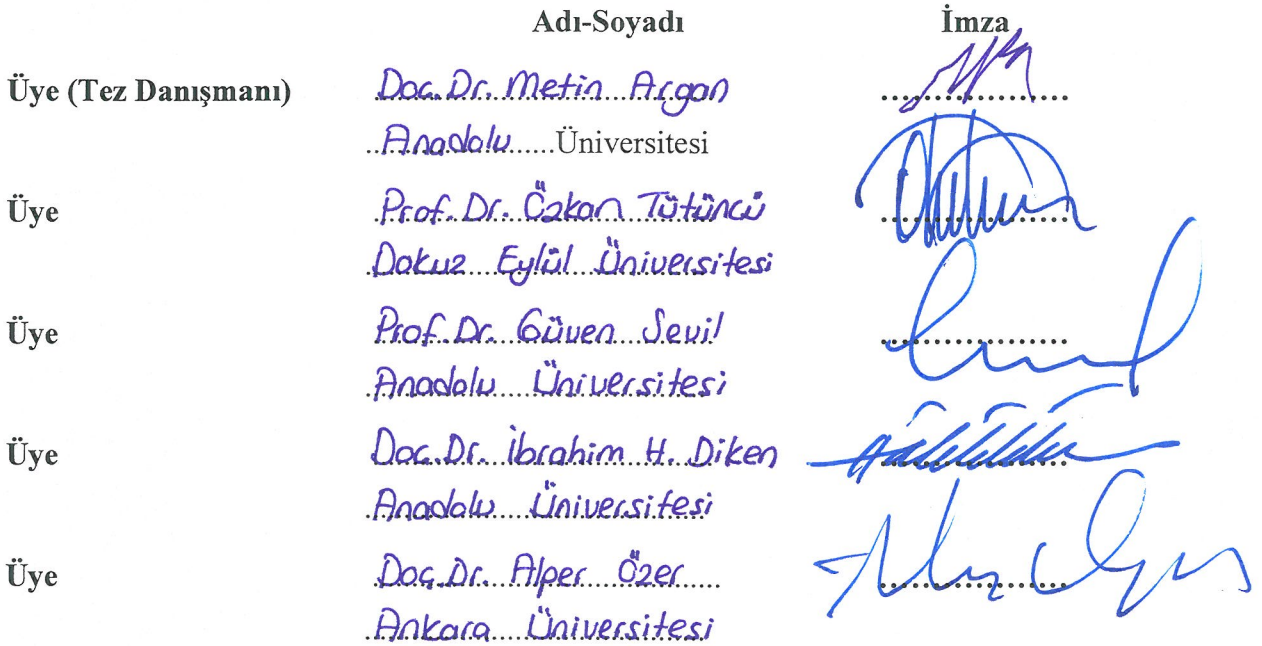 Adı-Soyadı İmza
Üye (Tez Danışmanı) Doç.Dr. Metin Argan
Anadolu Üniversitesi
Üye Prof.Dr. Özkan Tütüncü
Dokuz Eylül Üniversitesi
Üye Prof.Dr. Güven Sevil
Anadolu Üniversitesi
Üye Doç.Dr. İbrahim H. Diken
Anadolu Üniversitesi
Üye Doç.Dr. Alper Özer
Ankara Üniversitesi